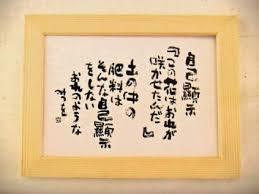 自己顕示
『この花はおれが
咲かせたんだ』
土の中の
肥料は
そんな自己顕示
をしない
おれのような
みつを